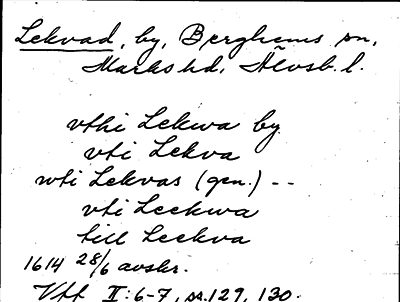 Lekvad, by, Berghems sn,
Marks hd, Älvsb. l.
vthi Lekwa by
vti Lekva
wti Lekvas (gen.) --
vti Leekwa
till Leekva
1614 28/6 avskr.
Vff II:6-7, ss.129, 130.